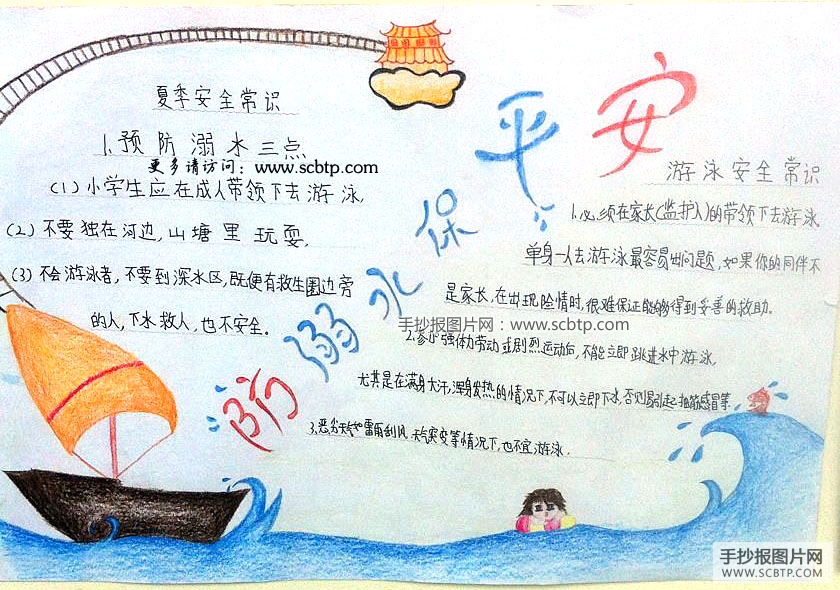 防溺水保平安
夏季安全常识
1.预防溺水三点
更多请访问：www.scbtp.com
(1)小学生应在成人带领下去游泳.
(2)不要独在河边,山塘里玩耍.
(3)不会游泳者,不要到深水区,既便有救生圈边旁
的人,下水救人,也不安全。
游泳安全常识
1.必须在家长(监护人)的带领下去游泳
单身一人去游泳最容易出问题,如果你的同伴不
是家长,在出现险情时,很难保证能够得到妥善的救助。
手抄报图片网：www.scbtp.com
2.参加强体力劳动或剧烈运动后,不能立即跳进水中游泳,
尤其是在满身大汗,浑身发热的情况下,不可以立即下水,否则易引起抽筋感冒等.
3.恶劣天气如雷雨刮风,天气突变等情况下,也不宜游泳.
手抄报图片网
WWW.SCBTP.COM